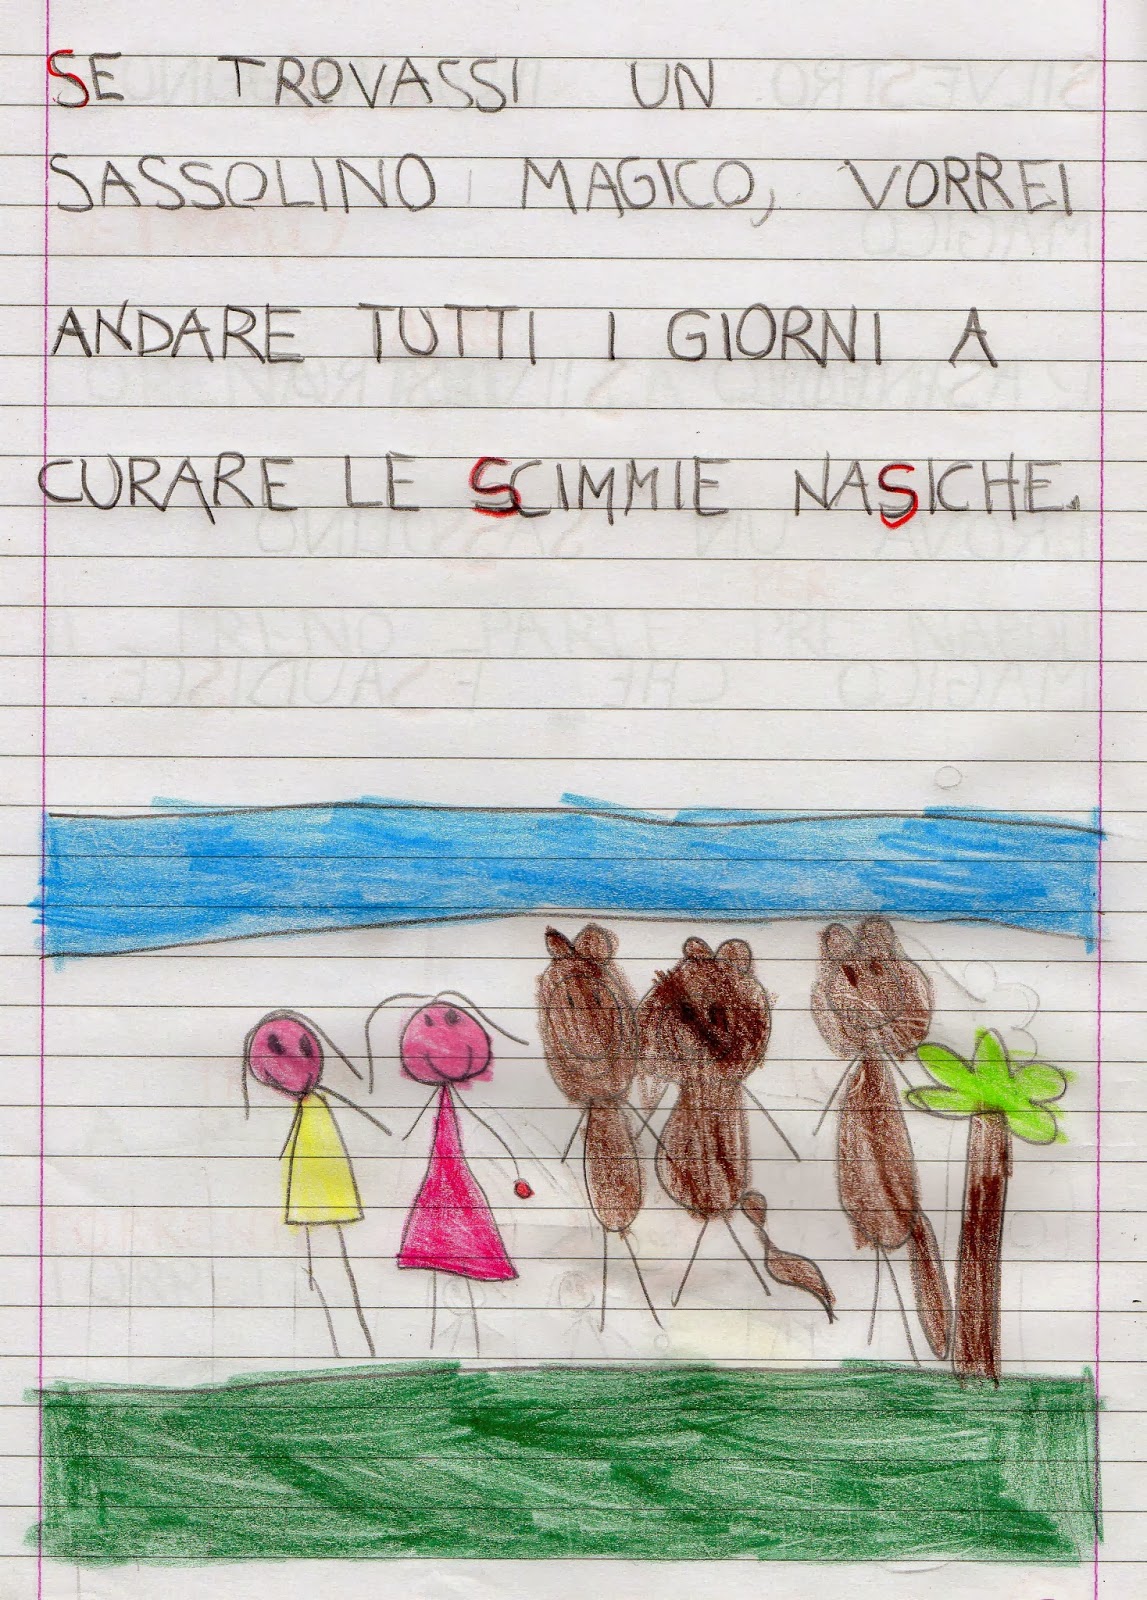 SE TROVASSI UN
SASSOLINO MAGICO, VORREI
ANDARE TUTTI I GIORNI A
CURARE LE SCIMMIE NASICHE.